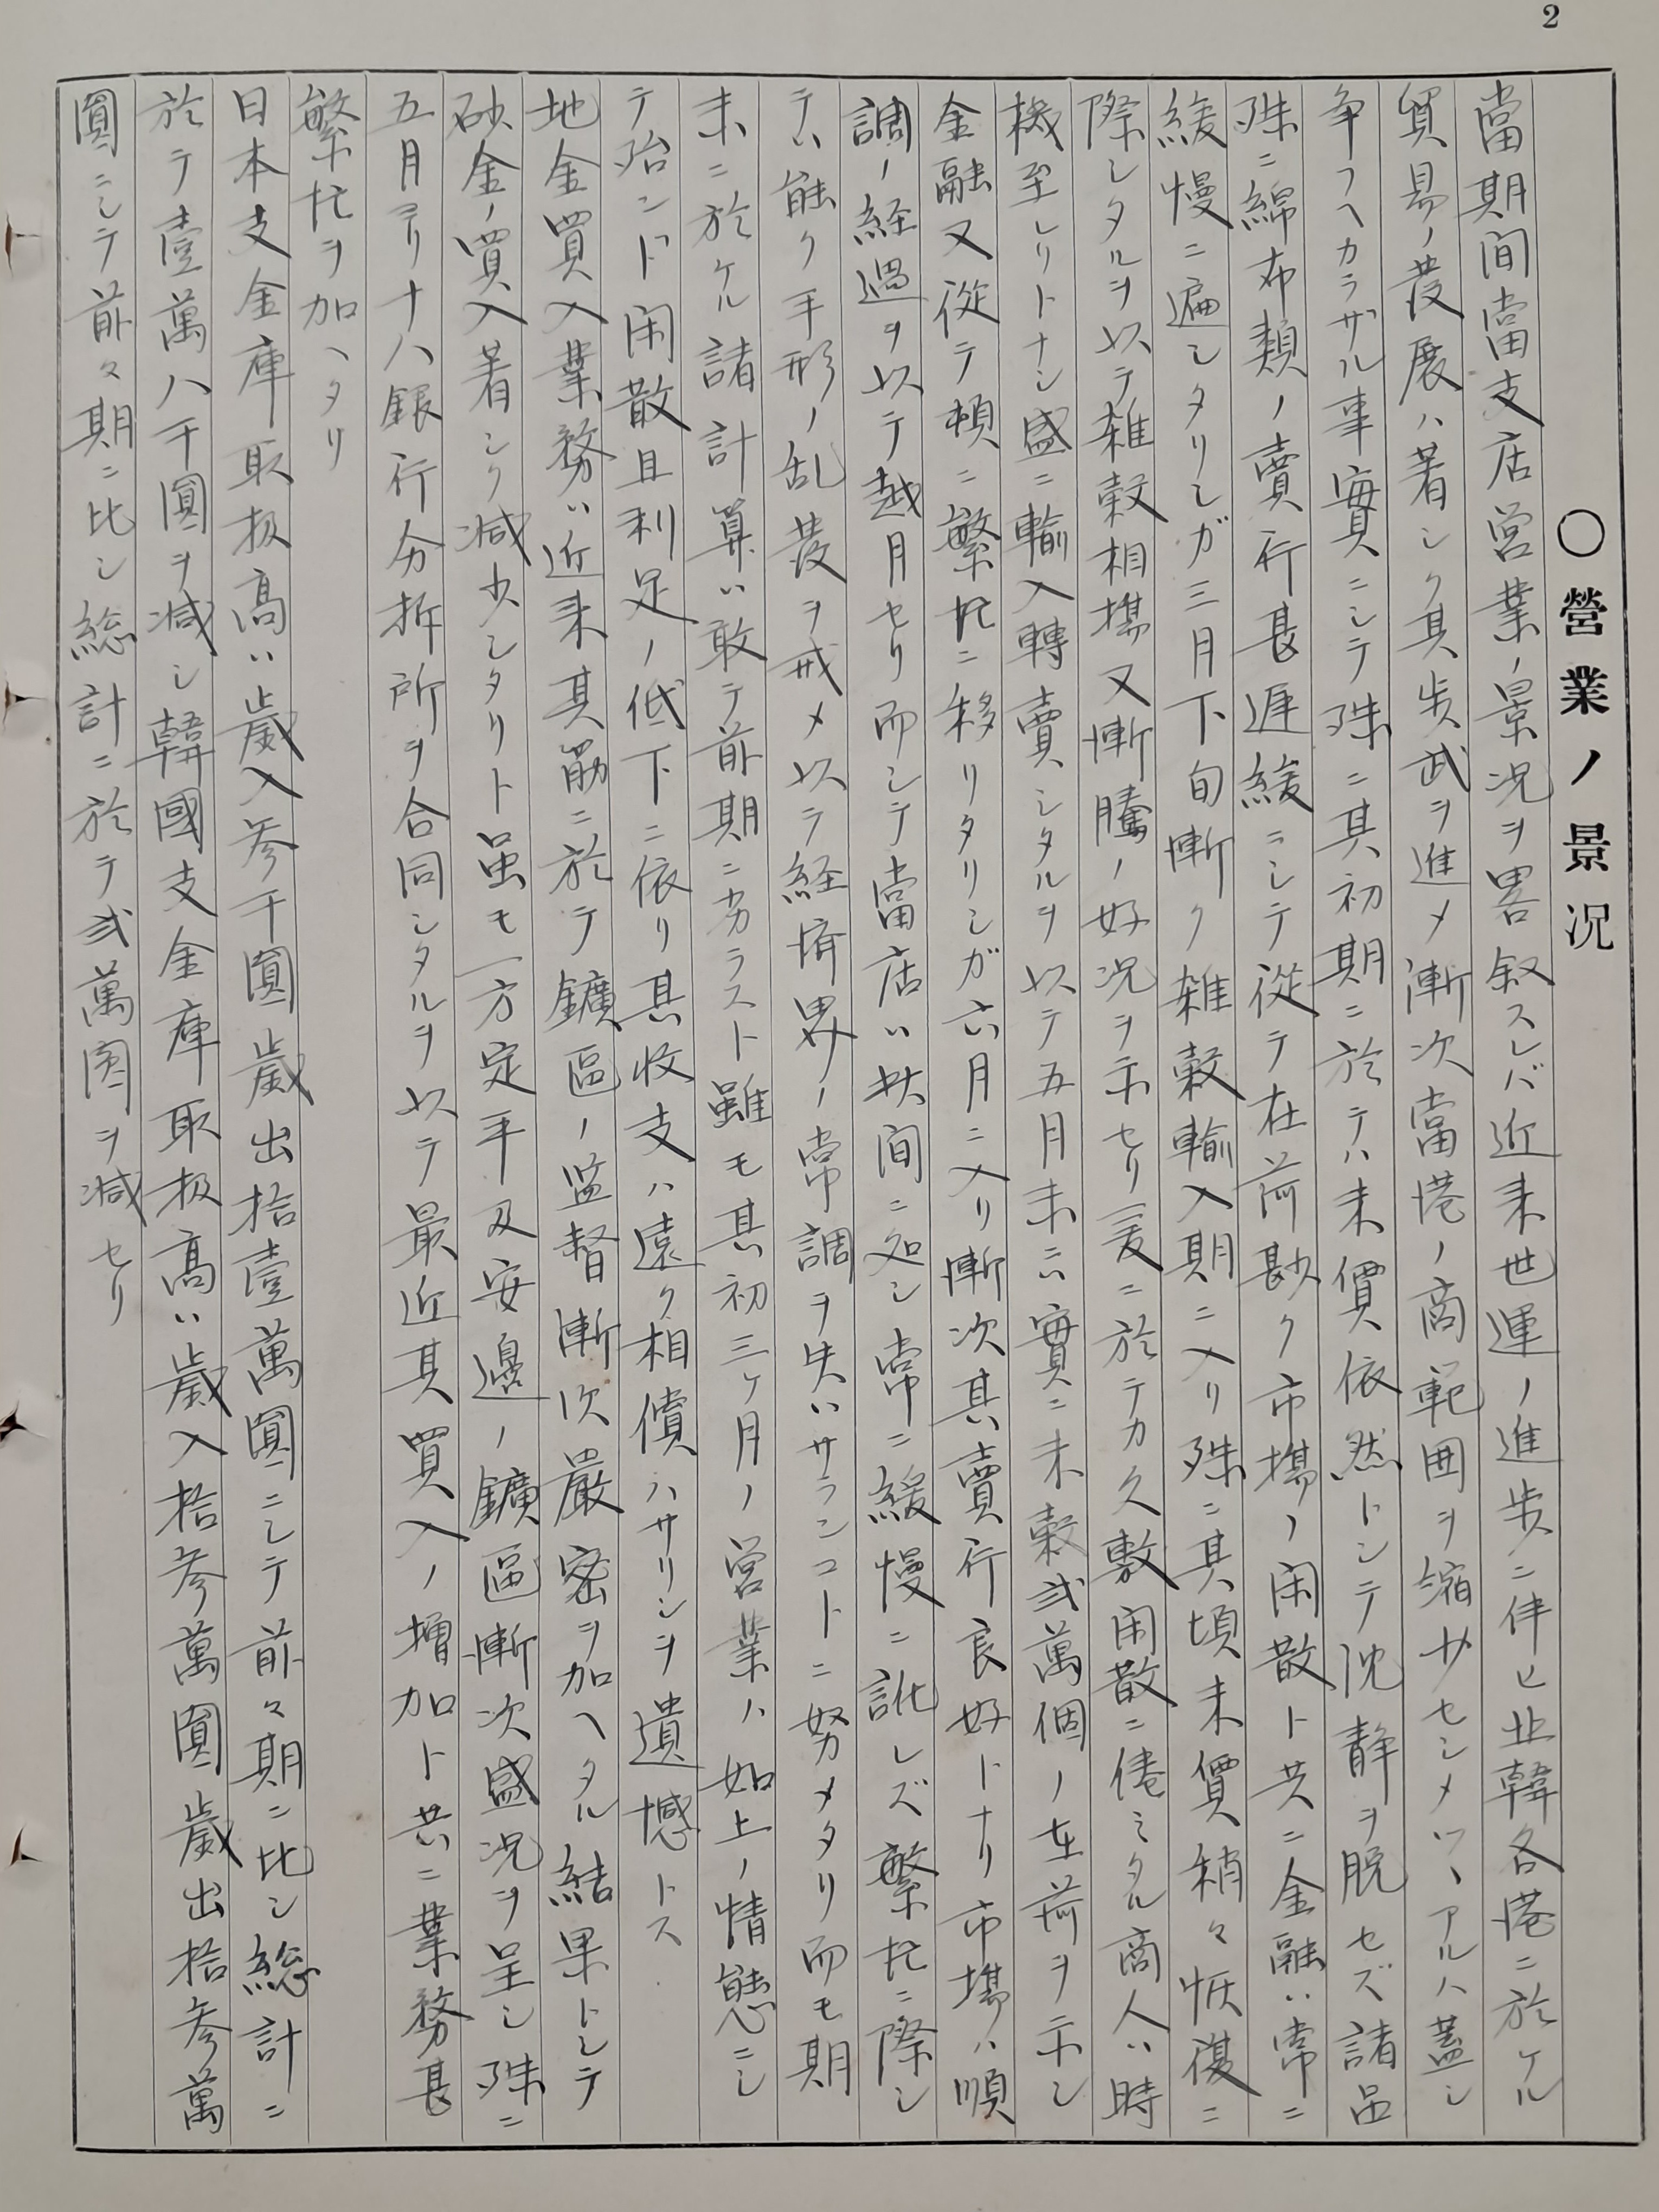 2
○營業ノ景況
當期間當支店営業ノ景况ヲ畧叙スレバ近来世運ノ進歩ニ伴ヒ北韓各港ニ於ケル
貿易ノ發展ハ著シク其歩武ヲ進メ漸次當港ノ商範囲ヲ縮少セシメツヽアルハ蓋シ
争フヘカラザル事實ニシテ殊ニ其初期ニ於テハ米價依然トシテ沈静ヲ脱セズ諸品
殊ニ綿布類ノ賣行甚遅緩ニシテ從テ在荷尠ク市場ノ閑散ト共ニ金融ハ常ニ
緩慢ニ遍シタリシガ三月下旬漸ク雑穀輸入期ニ入リ殊ニ其頃米價稍々恢復ニ
際シタルヲ以テ雑穀相場又漸騰ノ好况ヲ示セリ爰ニ於テカ久敷閑散ニ倦ミタル商人ハ時
機至レリトナシ盛ニ輸入轉賣シタルヲ以テ五月末ニハ實ニ米穀弐萬個ノ在荷ヲ示シ
金融又從テ頓ニ繁忙ニ移リタリシガ六月ニ入リ漸次其賣行良好トナリ市場ハ順
調ノ経過ヲ以テ越月セリ而シテ當店ハ此間ニ処シ常ニ緩慢ニ訛レズ繁忙ニ際シ
テハ能ク手形ノ乱發ヲ戒メ以テ経済界ノ常調ヲ失ハサランコトニ努メタリ而モ期
末ニ於ケル諸計算ハ敢テ前期ニ劣ラスト雖モ其初三ヶ月ノ営業ハ如上ノ情態ニシ
テ殆ンド閑散且利足ノ低下ニ依リ其收支ハ遠ク相償ハサリシヲ遺憾トス
地金買入業務ハ近来其筋ニ於テ鑛區ノ監督漸次嚴密ヲ加ヘタル結果トシテ
砂金ノ買入著シク減少シタリト虽モ一方定平及安邊ノ鑛區漸次盛况ヲ呈シ殊ニ
五月ヨリ十八銀行分析所ヲ合同シタルヲ以テ最近其買入ノ増加ト共ニ業務甚
繁忙ヲ加ヘタリ
日本支金庫取扱高ハ歳入参千圓歳出拾壹萬圓ニシテ前々期ニ比シ総計ニ
於テ壹萬八千圓ヲ減シ韓國支金庫取扱高ハ歳入拾参萬圓歳出拾参萬
圓ニシテ前々期ニ比シ総計ニ於テ弐萬圓ヲ減セリ